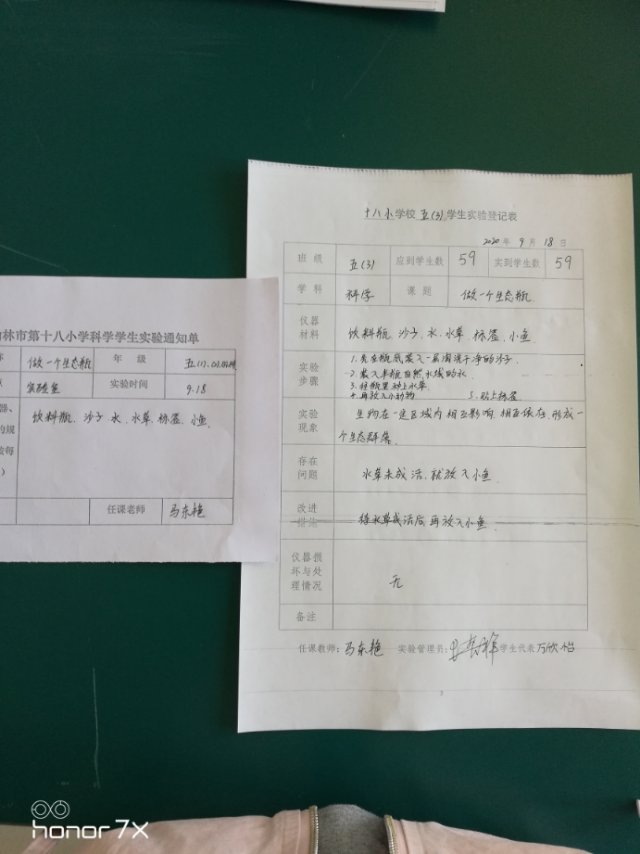 十八小学校五(3)学生实验登记表
2020年9月18日
班级 五(3) 应到学生数 59 实到学生数 59
学科 科学 课题 做一个生态瓶
仪器材料 饮料瓶、沙子、水、水草、标签、小鱼
实验步骤 1.先在瓶底装入一层淘洗干净的沙子.
2.装入半瓶自然水域的水.
3.往瓶里种上水草.
4.再放入小动物 5.贴上标签
实验现象 生物在一定区域内相互影响、相互依存、形成一
个生态群落.
存在问题 水草未成活,就放入小鱼.
改进措施 待水草成活后再放入小鱼.
仪器损坏与处理情况 无
备注
任课教师:马东艳 实验管理员: 学生代表 万欣怡
林市第十八小学科学学生实验通知单
做一个生态瓶 年级
实验室 实验时间 9.18
饮料瓶、沙子、水、水草、标签、小鱼.
任课老师 马东艳
honor 7X